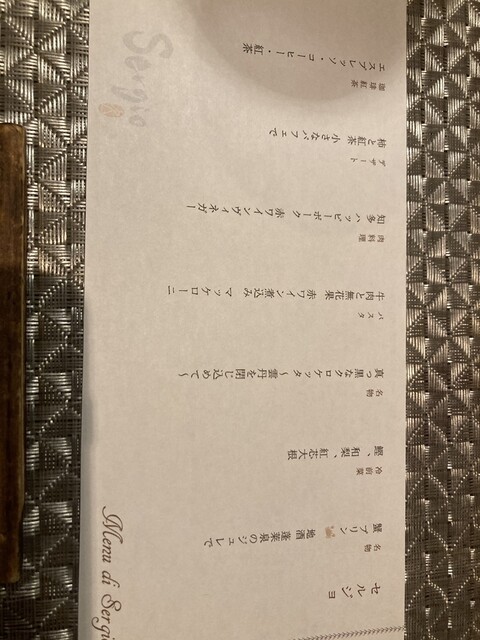 セルジョ
名物
蟹プリン 地酒蓬莱泉のジュレで
冷前菜
鰹、和梨、紅芯大根
名物
真っ黒なクロケッタ〜雲丹を閉じ込めて〜
パスタ
牛肉と無花果 赤ワイン煮込み マッケローニ
肉料理
知多ハッピーポーク 赤ワインヴィネガー
デザート
柿と紅茶 小さなパフェで
珈琲紅茶
エスプレッソ・コーヒー・紅茶
Menu di Sergio
Sergio